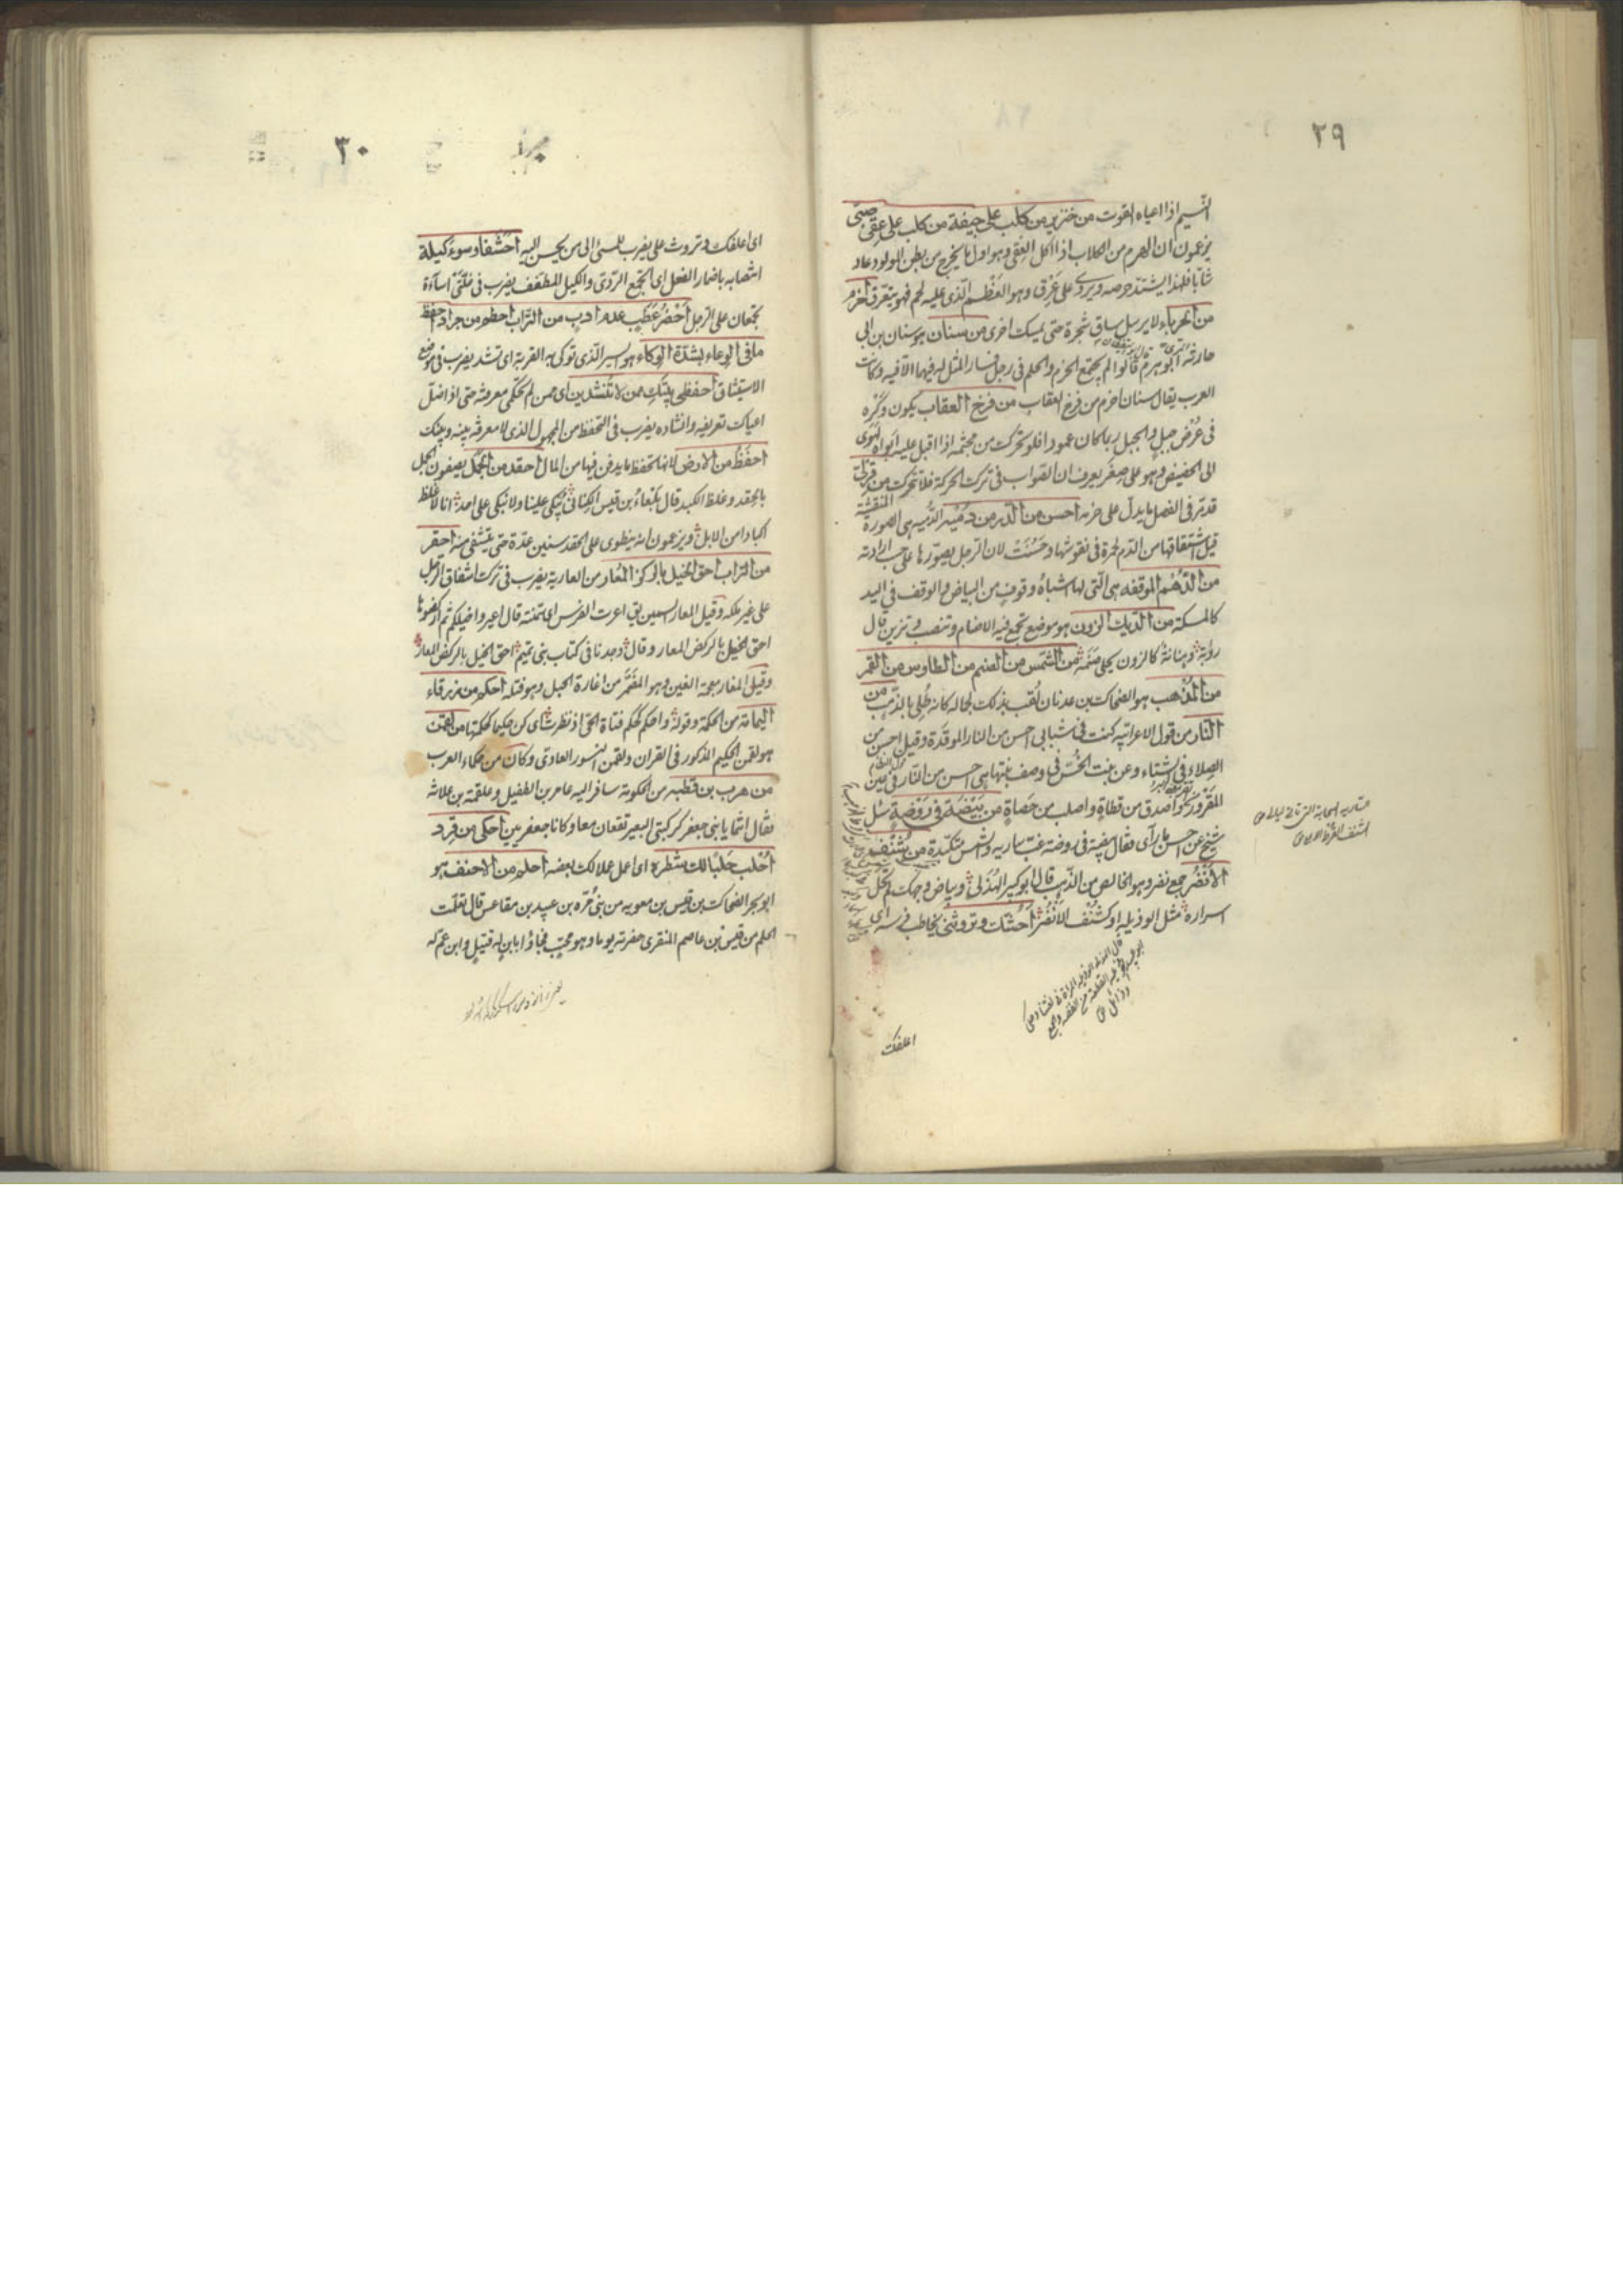 ٢٩
النسيم اذا اعياه القوت من خنزير من كلب على جيفة من كلب على عقى صبى
يزعمون ان الهرم من الكلاب اذا اكل العقى وهو اول ما يخرج من بطن المولود عاد
شابا فلهذا يشتد حرصه ويروى على عَرْق وهو العَظْم الّذى عليه لحم فهو يتعرق احزم
من الحرباء لا يرسل ساق شجرة حتى يمسك اخرى من سنان هو سنان بن ابى
حارثه ابو هرم قالوا لم يجتمع الحزم والحلم فى رجل فسار المثل له فيهما الا فيه وكانت
العرب يقال سنان احزم من فرخ العقاب من فرخ العقاب يكون وكْره
فى عُرْض جبل والجبل ربما كان عمودا فلو تحرك من مجثمه اذا اقبل عليه ابواه لهوى
الى الحضيض وهو على صغر يعرف ان الصواب فى ترك الحركة فلا تتحرك من قرلّى
قد مرّ فى الفصل ما يدل على حزمه احسن من الدّمى من دمية الدّميه هى الصورة المنقشة
قيل اشتقاقها من الدّم لحمرة فى نقوشها وحَسُنَتْ لان الرجل يصوّرها على حسب ارادته
من الدُّهْم الموقفه هى الّتى لها اشباهُ وقوفٍ من البياض والوقف فى اليد
كالمسكة من الديك الزون هو موضع تجمع فيه الاصنام وتنصب وتزين قال
رؤبة وهنانة كالزون يجلى صَنَمُه من الشّمس من الصنم من الطاوس من القمر
من المُذْهب هو الضحاك بن عدنان لُقب بذلك لجماله كانه طُلِىَ بالذهب من
النار من قول الاعرابيه كنت فى شبابى احسن من النار الموقدة وقيل احسن من
الصِلاء فى الشتاء وعن بنت الخُسّ فى وصف بنتها هى احسن من النّار فى عين
المَقْرور واصدق من قطاةٍ واصلب من حَصاةٍ من بَيْضَة فى رَوْضَةٍ سئل
شيخ عن احسن ما رآى فقال بيضة فى روضة غبّ ساريه والشمس مكبّدة من شَنْف
الأنْضُر جمع نضر وهو الخالص من الذهب قال ابو كبير الهُذَلى وبياض وجهك لم تحل
اسراره مثل الوذيله او كشَنْف الأنْضُر أحُشّك وتروثنى يخاطب فرسه اى
اعلفك
٣٠
اى اعلفك وتروث على يضرب للمسئ الى من يحسن اليه أحَشَفا وسوءَ كيلة
انتصابه باضمار الفعل اى أتجمع الردّى والكيل المطفف يضرب فى خلّتَى اساءة
تجمعان على الرجل احْضُرُ عَطَبٍ عدم ادب من التراب احطم من جراد احفظ
ما فى الوعاء بشدّة الوكاء هو السير الّذى توكى به القربة اى تشد يضرب فى موضع
الاستيثاق احفظى بيتك ممن لا تُنشدين اى ممن لم تحكمى معرفته حتى اذا ضلّ
اعياك تعريفه وانشاده يضرب فى التحفظ من المجهول الذى لا معرفة بينه وبينك
احفَظُ من الارض لانها تحفظ ما يدفن فيها من المال احقد من الجَمَل يصفون الجمل
بالحقد وغلظ الكبد قال بَلْعاءُ بن قيس الكِنانى يُبكى علينا ولا نبكى على احد انا لاغلظ
اكبادا من الابل ويزعمون انه ينطوى على الحقد سنين عدّة حتى يتشفى منه احقر
من التراب احق الخيل بالركوز المُعار من العارية يضرب فى ترك اشفاق الرجل
على غير ملكه وقيل المعار السمين يق اعرت الفرس اى سمنته قال اعيروا خيلكم ثم اركضوها
احق الخيل بالركض المعار وقال وجدنا فى كتاب بنى تميم احق الخيل بالركض المعار
وقيل المغار بمعجمة الغين وهو المضَمَّر من اغارة الحبل وهو فتله احكم من زرقاء
اليمامة من الحكمة وقوله واحكم كحكم فتاة الحى اذ نظرت اى كن حكيما كحكمتها من لقمن
هو لقمن الحكيم المذكور فى القران ولقمن النسور العادى وكان من حكماء العرب
من هرب بن قطبه من الحكومة سافر اليه عامر بن الطفيل وعلقمة بن علاثه
فقال انتما يا بنى جعفر كركبتى البعير تقعان معا وكانا جعفريين احكى من قِرد
اُحْلُب حَلَبًا لك شطره اى اعمل عملا لك بعضه احلم من الاحنف هو
ابو بحر الضحاك بن قيس بن معويه من بنى مُرّه بن عبيد بن مقاعس قال تعلّمت
الحلم من قيس بن عاصم المنقرى حضرته يوما وهو محتب فجاؤا بابنٍ له قتيلٍ وابن عم له